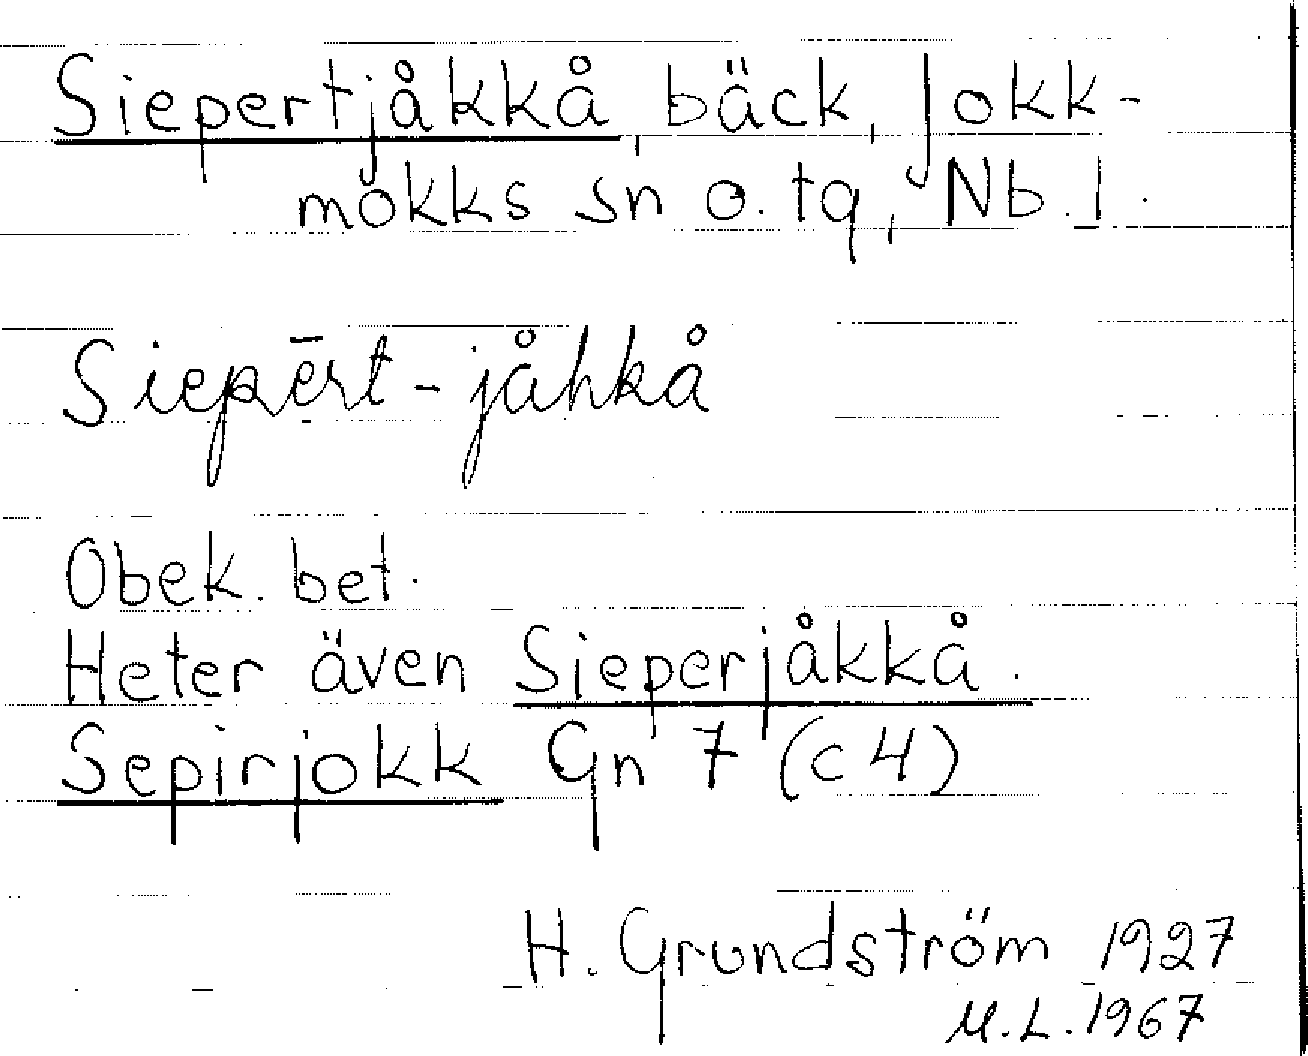 Siepertjåkkå, bäck, Jokk-
mokks sn o. tg, Nb. l.
Siepērt-jåhkå
Obek. bet.
Heter även Sieperjåkkå.
Sepirjokk Gn 7 (c4)
H. Grundström 1927
M.L. 1967